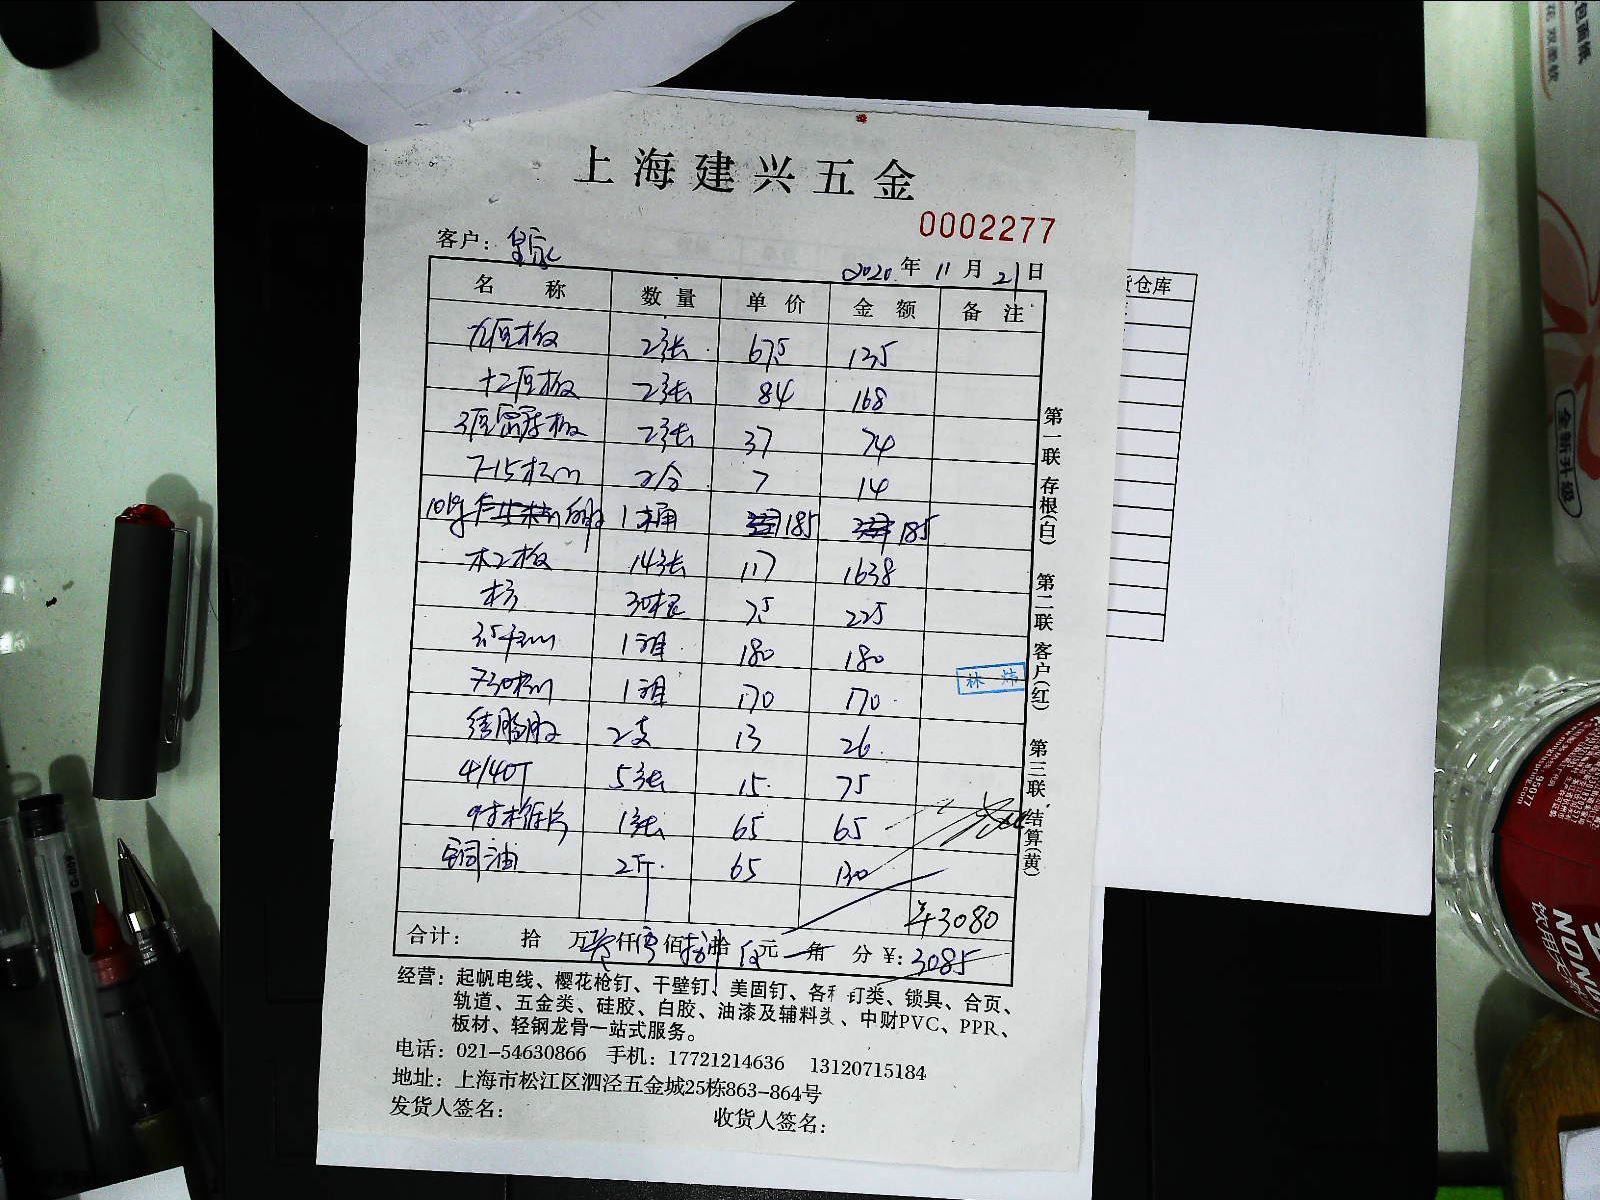 上海建兴五金
0002277
客户：
2020年11月21日
名称 数量 单价 金额 备注
九厘板 2张 67.5 135
十二厘板 2张 84 168
3厘密度板 2张 37 74
7 14
白胶 1桶 185 185
木工板 14张 117 1638
木方 30根 7.5 225
180 180
170 170
结构胶 2支 13 26
5张 15 75
1张 65 65
铜油 2斤 65 130
¥3080
合计： 拾 万叁仟零佰捌拾伍元 角 分 ¥：3085
第一联 存根（白） 第二联 客户（红） 第三联 结算（黄）
林 炜
货仓库
经营：起帆电线、樱花枪钉、干壁钉、美固钉、各种钉类、锁具、合页、
轨道、五金类、硅胶、白胶、油漆及辅料头、中财PVC、PPR、
板材、轻钢龙骨一站式服务。
电话：021-54630866 手机：17721214636 13120715184
地址：上海市松江区泗泾五金城25栋863-864号
发货人签名： 收货人签名：
包面纸
全新升级
95077
饮用